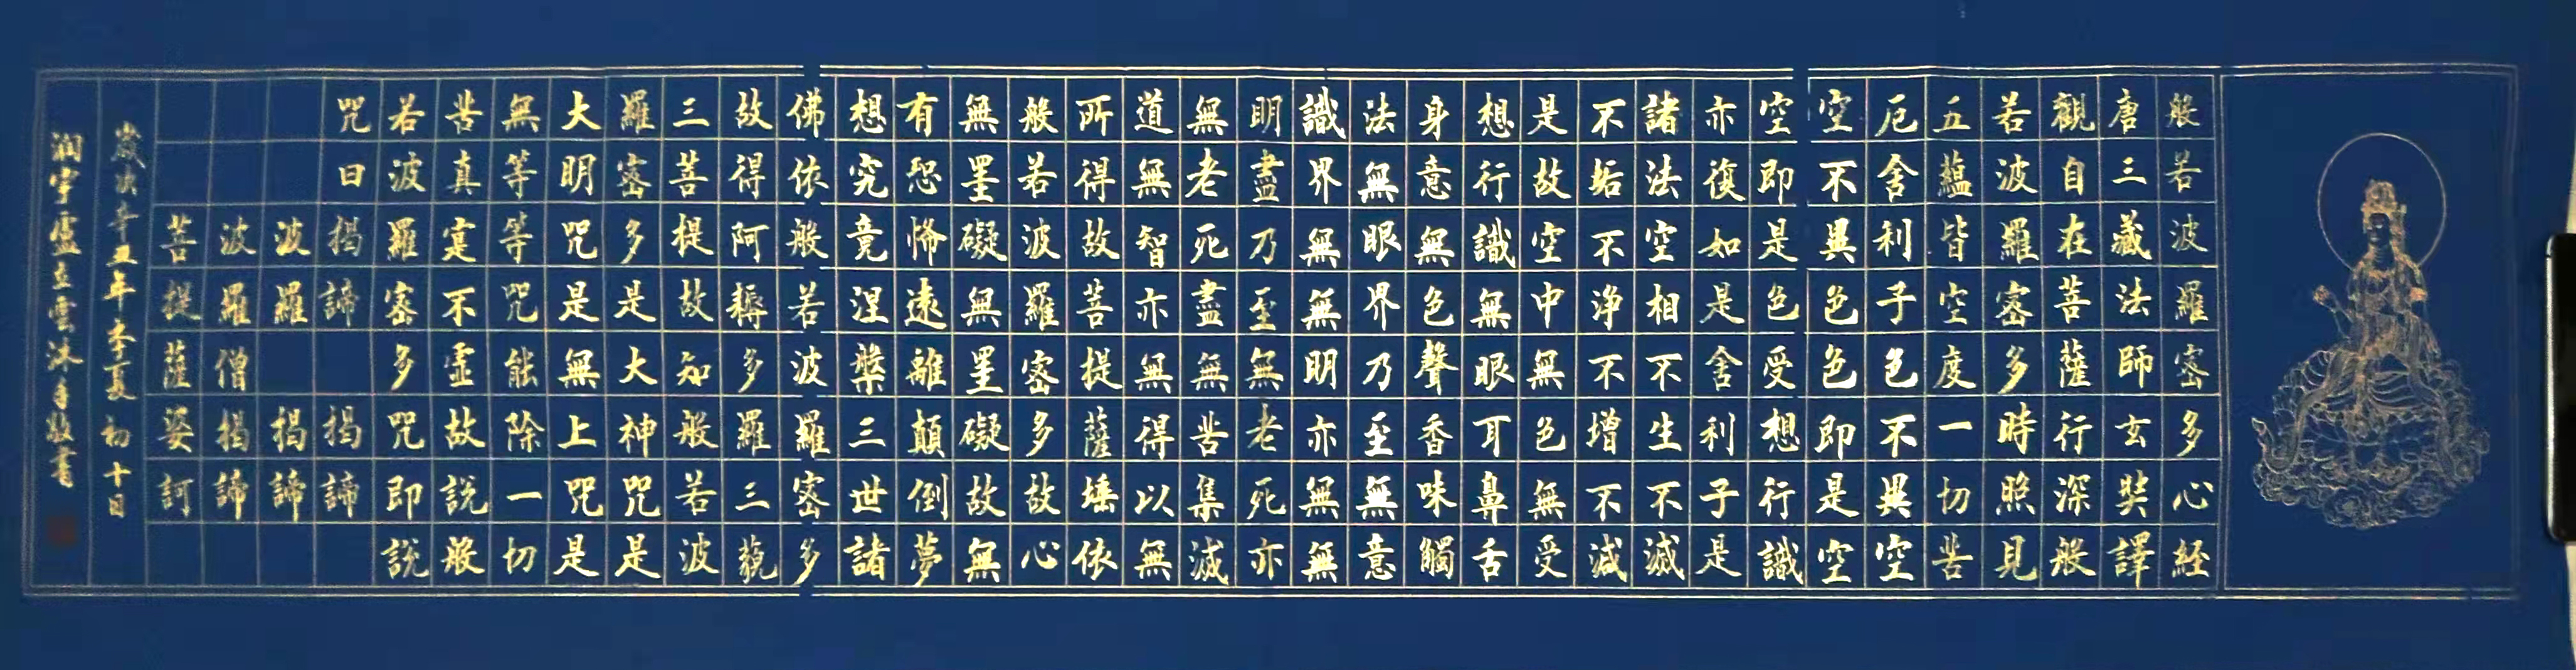 般若波羅密多心經
唐三藏法師玄奘譯
觀自在菩薩行深般
若波羅密多時照見
五蘊皆空度一切苦
厄舍利子色不異空
空不異色色即是空
空即是色受想行識
亦復如是舍利子是
諸法空相不生不滅
不垢不净不增不減
是故空中無色無受
想行識無眼耳鼻舌
身意無色聲香味觸
法無眼界乃至無意
識界無無明亦無無
明盡乃至無老死亦
無老死盡無苦集滅
道無智亦無得以無
所得故菩提薩埵依
般若波羅密多故心
無罣礙無罣礙故無
有恐怖遠離顛倒夢
想究竟涅槃三世諸
佛依般若波羅密多
故得阿耨多羅三藐
三菩提故知般若波
羅密多是大神咒是
大明咒是無上咒是
無等等咒能除一切
苦真寔不虛故說般
若波羅密多咒即說
咒曰揭諦 揭諦
波羅 揭諦
波羅僧揭諦
菩提薩婆訶
歲次辛丑年季夏初十日
润宇盧立雲沐手敬書